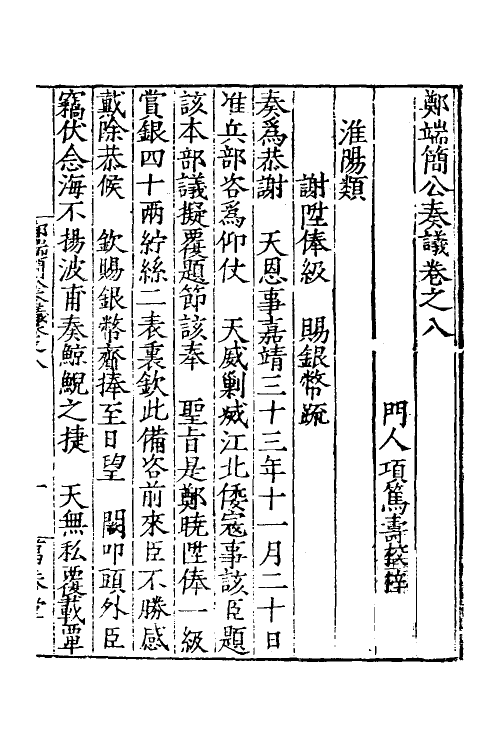 鄭端簡公奏議卷之八
門人項篤壽校梓
淮陽類
謝陞俸級　賜銀幣疏
奏爲恭謝　天恩事嘉靖三十三年十一月二十日
准兵部咨爲仰仗　天威剿滅江北倭寇事該臣題
該本部議擬覆題節該奉　聖旨是鄭曉陞俸一級
賞銀四十兩紵絲二表裏欽此備咨前來臣不勝感
戴除恭候　欽賜銀幣齎捧至日望　闕叩頭外臣
竊伏念海不揚波甫奏鯨鯢之捷　天無私覆載覃
鄭端簡公奏議卷之八　一